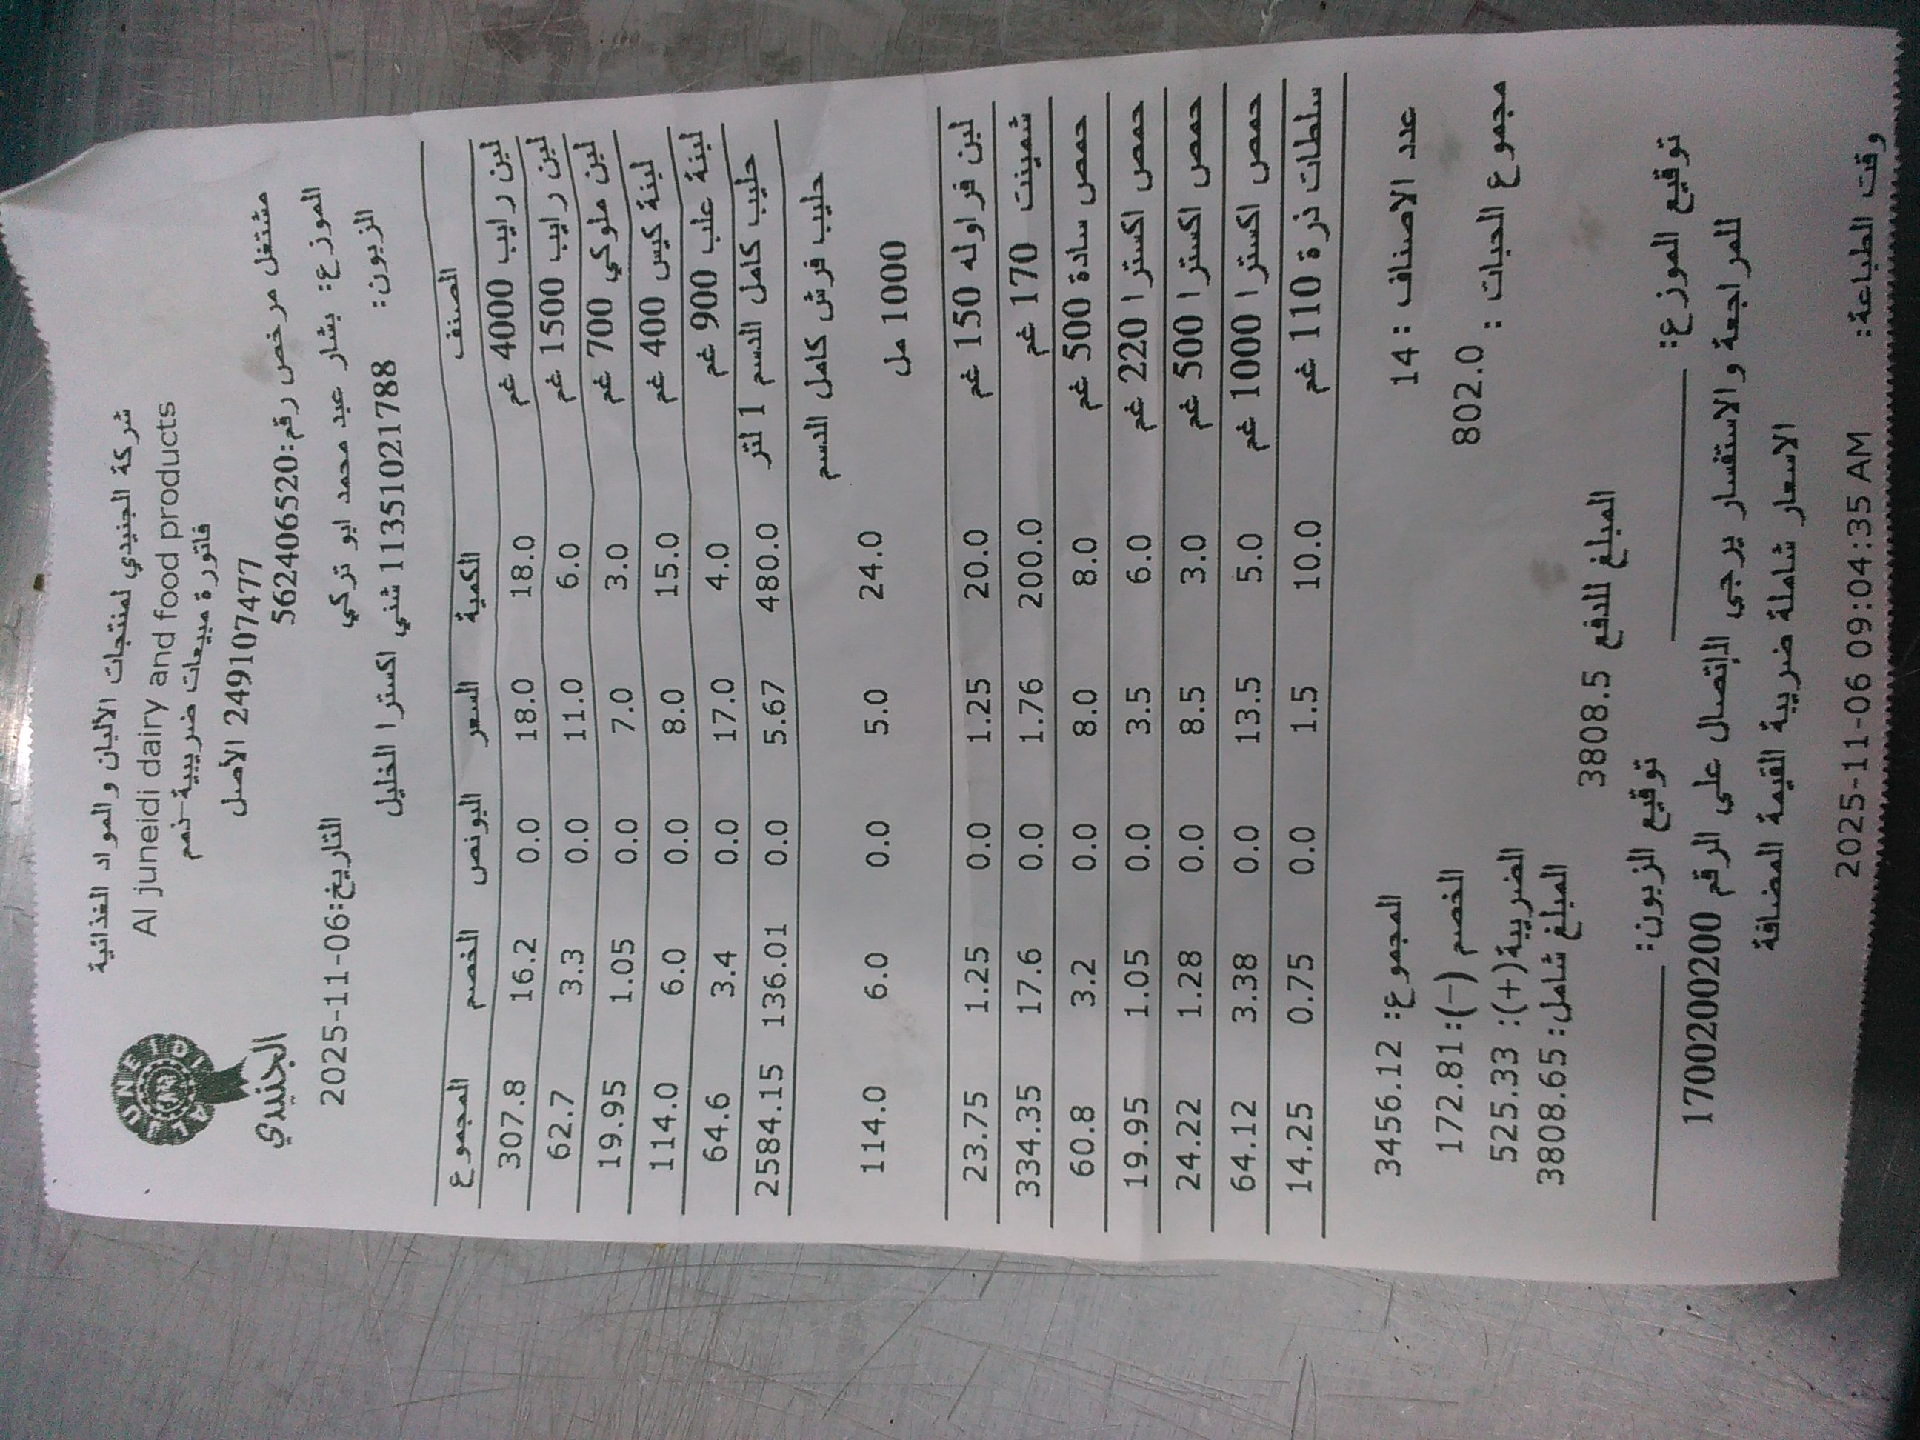 AL JUNEIDI
الجنيدي
شركة الجنيدي لمنتجات الألبان والمواد الغذائية
Al juneidi dairy and food products
فاتورة مبيعات ضريبية-نمم
249107477 الأصل
مشتغل مرخص رقم:562406520
الموزع: بشار عبد محمد ابو تركي
التاريخ:2025-11-06
الزبون: 11351021788 شني اكسترا الخليل
الصنف الكمية السعر البونص الخصم المجموع
لبن رايب 4000 غم 18.0 18.0 0.0 16.2 307.8
لبن رايب 1500 غم 6.0 11.0 0.0 3.3 62.7
لبن ملوكي 700 غم 3.0 7.0 0.0 1.05 19.95
لبنة كيس 400 غم 15.0 8.0 0.0 6.0 114.0
لبنة علب 900 غم 4.0 17.0 0.0 3.4 64.6
حليب كامل الدسم 1 لتر 480.0 5.67 0.0 136.01 2584.15
حليب فرش كامل الدسم
1000 مل 24.0 5.0 0.0 6.0 114.0
لبن فراوله 150 غم 20.0 1.25 0.0 1.25 23.75
شمينت 170 غم 200.0 1.76 0.0 17.6 334.35
حمص سادة 500 غم 8.0 8.0 0.0 3.2 60.8
حمص اكسترا 220 غم 6.0 3.5 0.0 1.05 19.95
حمص اكسترا 500 غم 3.0 8.5 0.0 1.28 24.22
حمص اكسترا 1000 غم 5.0 13.5 0.0 3.38 64.12
سلطات ذرة 110 غم 10.0 1.5 0.0 0.75 14.25
عدد الاصناف : 14
المجموع: 3456.12
مجموع الحبات : 802.0
الخصم (-): 172.81
الضريبة(+): 525.33
المبلغ شامل: 3808.65
المبلغ للدفع 3808.5
توقيع الموزع:
توقيع الزبون:
للمراجعة والاستفسار يرجى الإتصال على الرقم 1700200200
الاسعار شاملة ضريبة القيمة المضافة
وقت الطباعة: 2025-11-06 09:04:35 AM